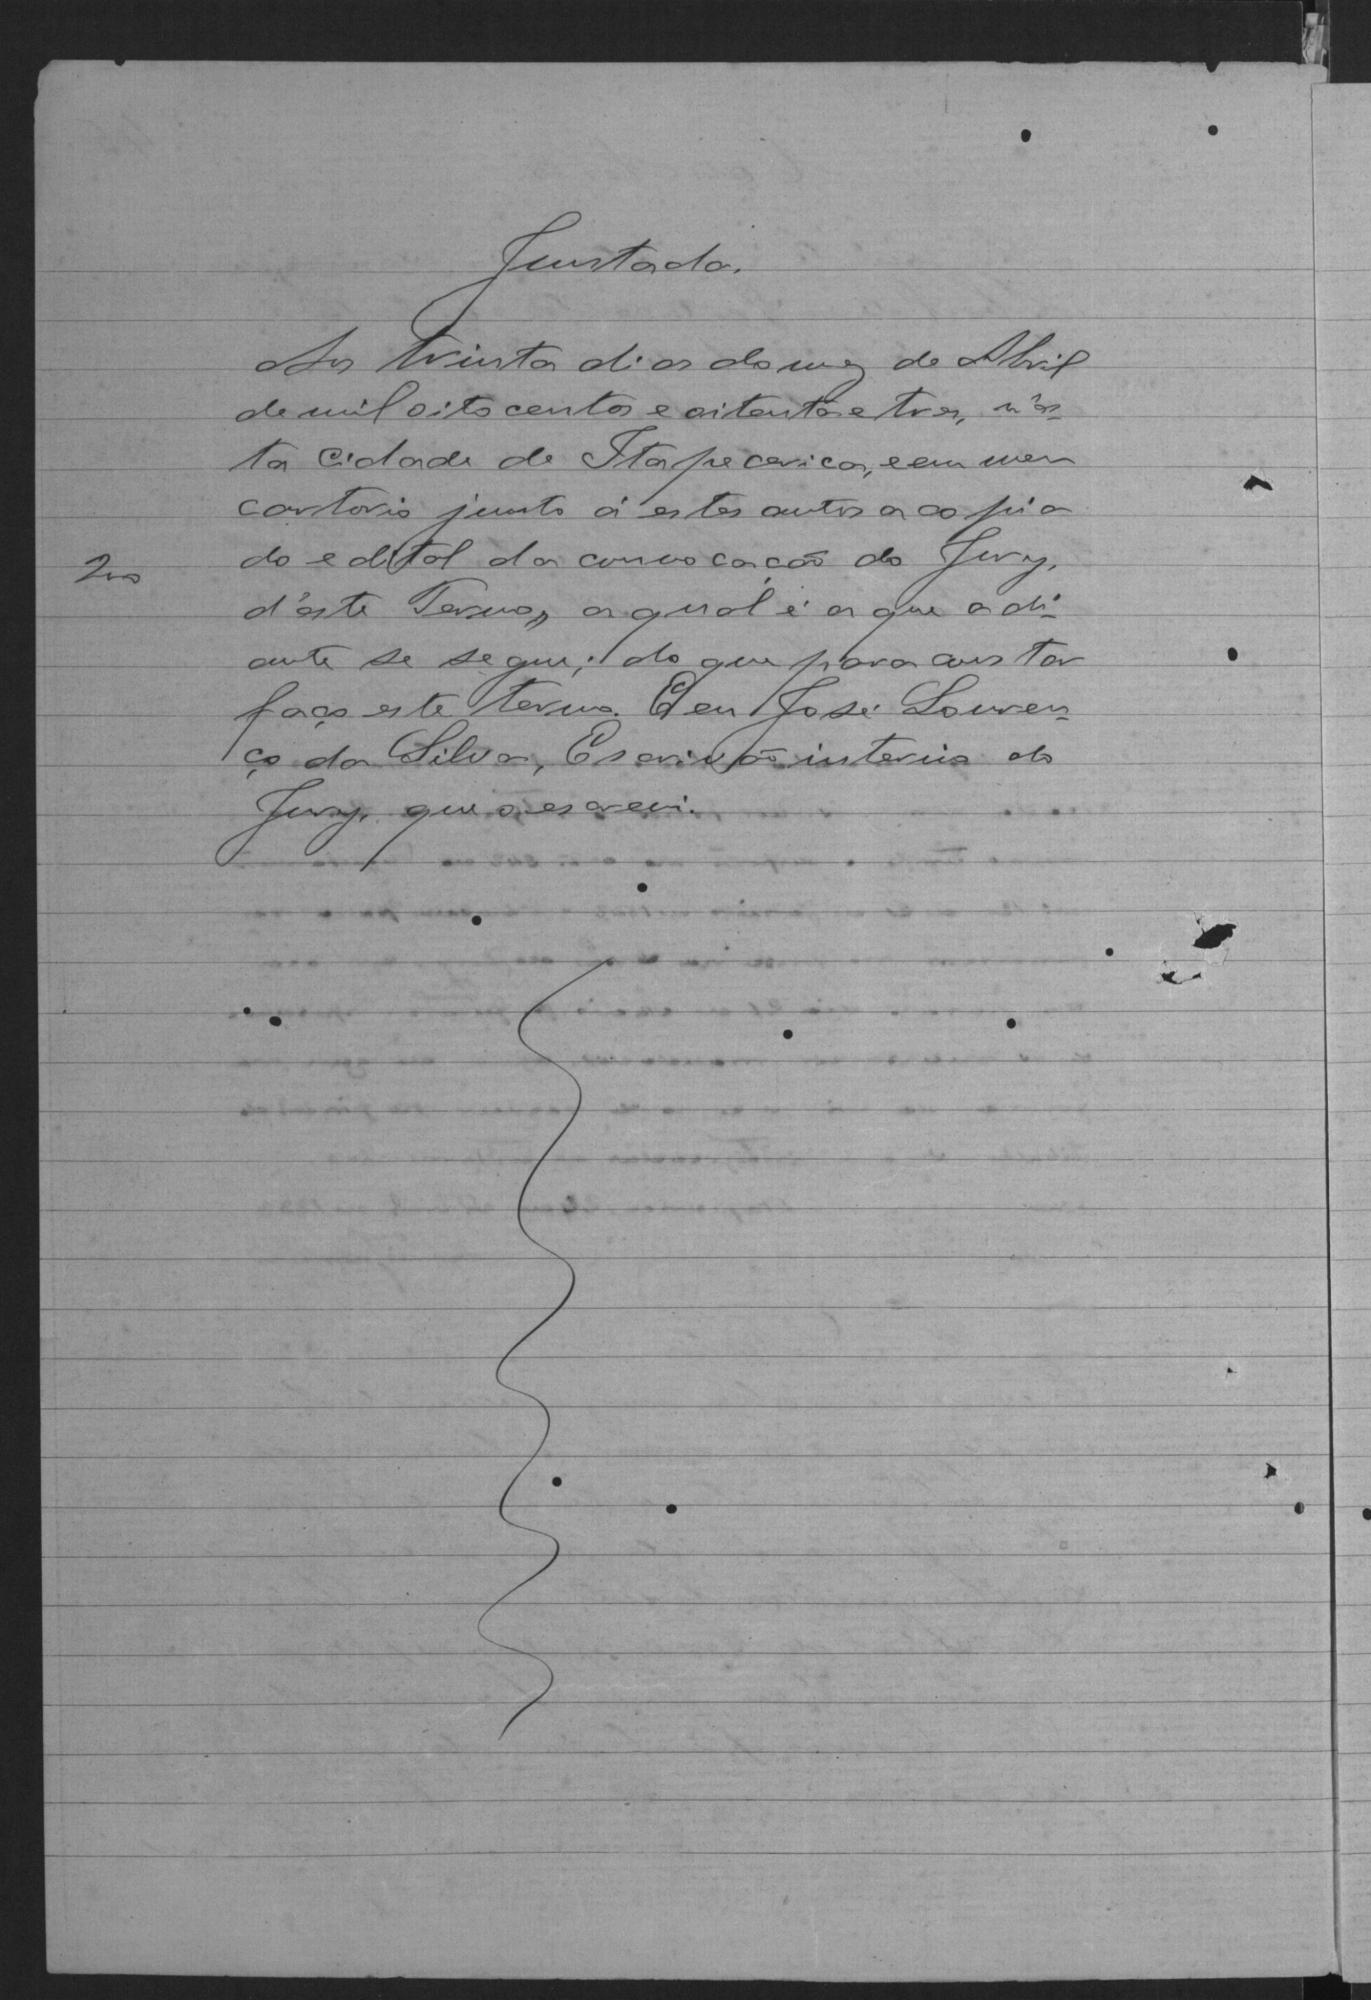 Juntada.
Aos trinta dias do mez de Abril
de mil oito centos e oitenta e tres, n'es-
ta Cidade de Itapecerica, e em meu
cartorio junto á estes autos a copia
do edital da convocação do Jury,
200
d'este Termo, a qual é a que adi-
ante se segue; do que para constar
faço este termo. E eu José Louren-
ço da Silva, Escrivão interino do
Jury, que o escrevi.